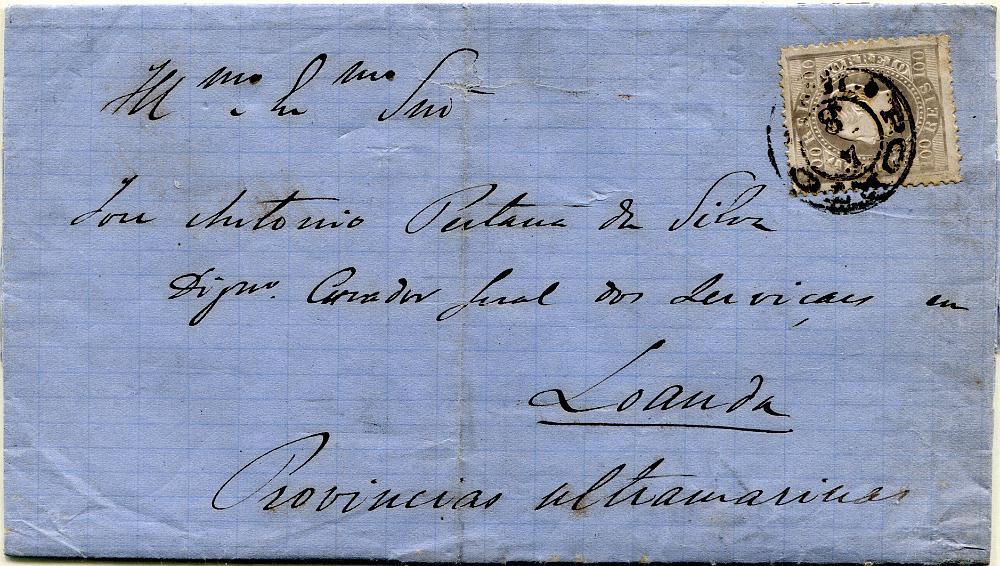 Illmo e Exmo Snr
José Antonio Pestana da Silva
Digmo. Curador Geral dos Serviçaes em
Loanda
Provincias ultramarinas
CORREIO